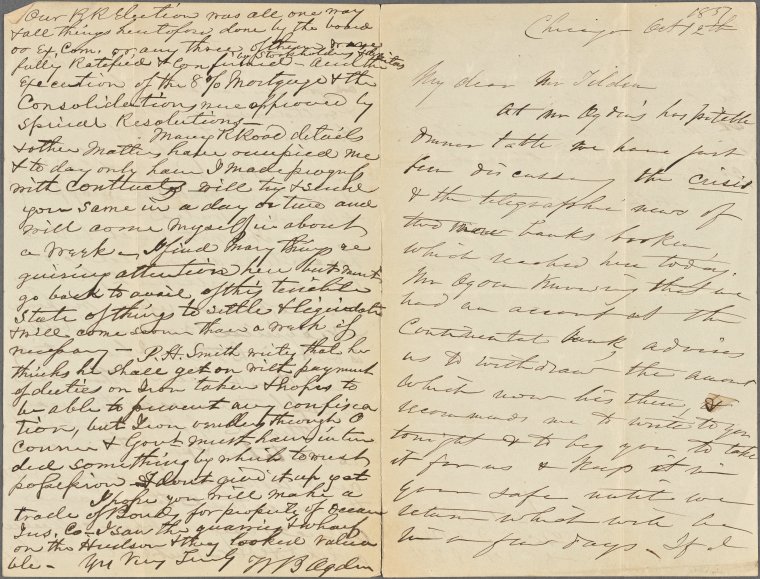 Our RR Election was all one way
& all things heretofore done by the board
or Ex. Com. or any three of them or are
in stockholders
fully Ratified & Confirmed – and the
Execution of the 8% Mortgage & the
Consolidation were approved by
special Resolutions –
Many RRoad details
& other matters have occupied me
& to day only have I made progress
with contracts will try & send
you same in a day or two and
will come myself in about
a week – I find many things re
quiring attention here but must
go back to avail of this terrible
State of things to settle & liquidate
& will come sooner than a week if
necessary – P. H. Smith writes that he
thinks he shall get on with payment
of duties on Iron taken & hopes to
be able to prevent any confisca
tion, but Iron vender through O
Connor & Govt must have in ten
ded something by which to wrest
possession I dont give it up yet
I hope you will make a
trade of Bonds for property of Ocean
Ins. Co – I saw the quarries & wharf
on the Hudson & they looked valua
ble – Yrs Very Truly W B Ogden
1857
Chicago Oct 12th
My dear Mr Tilden
At Mr Ogden's hospitable
dinner table we have just
been discussing the crisis
& the telegraphic news of
two more banks broken,
which reached here today.
Mr Ogden knowing that we
had an account at the
Continental bank, advises
us to withdraw the amount
which now lies there &
recommends me to write to you
tonight & to beg you to take
it for us & keep it in
your safe until we
return which will be
in a few days – If I